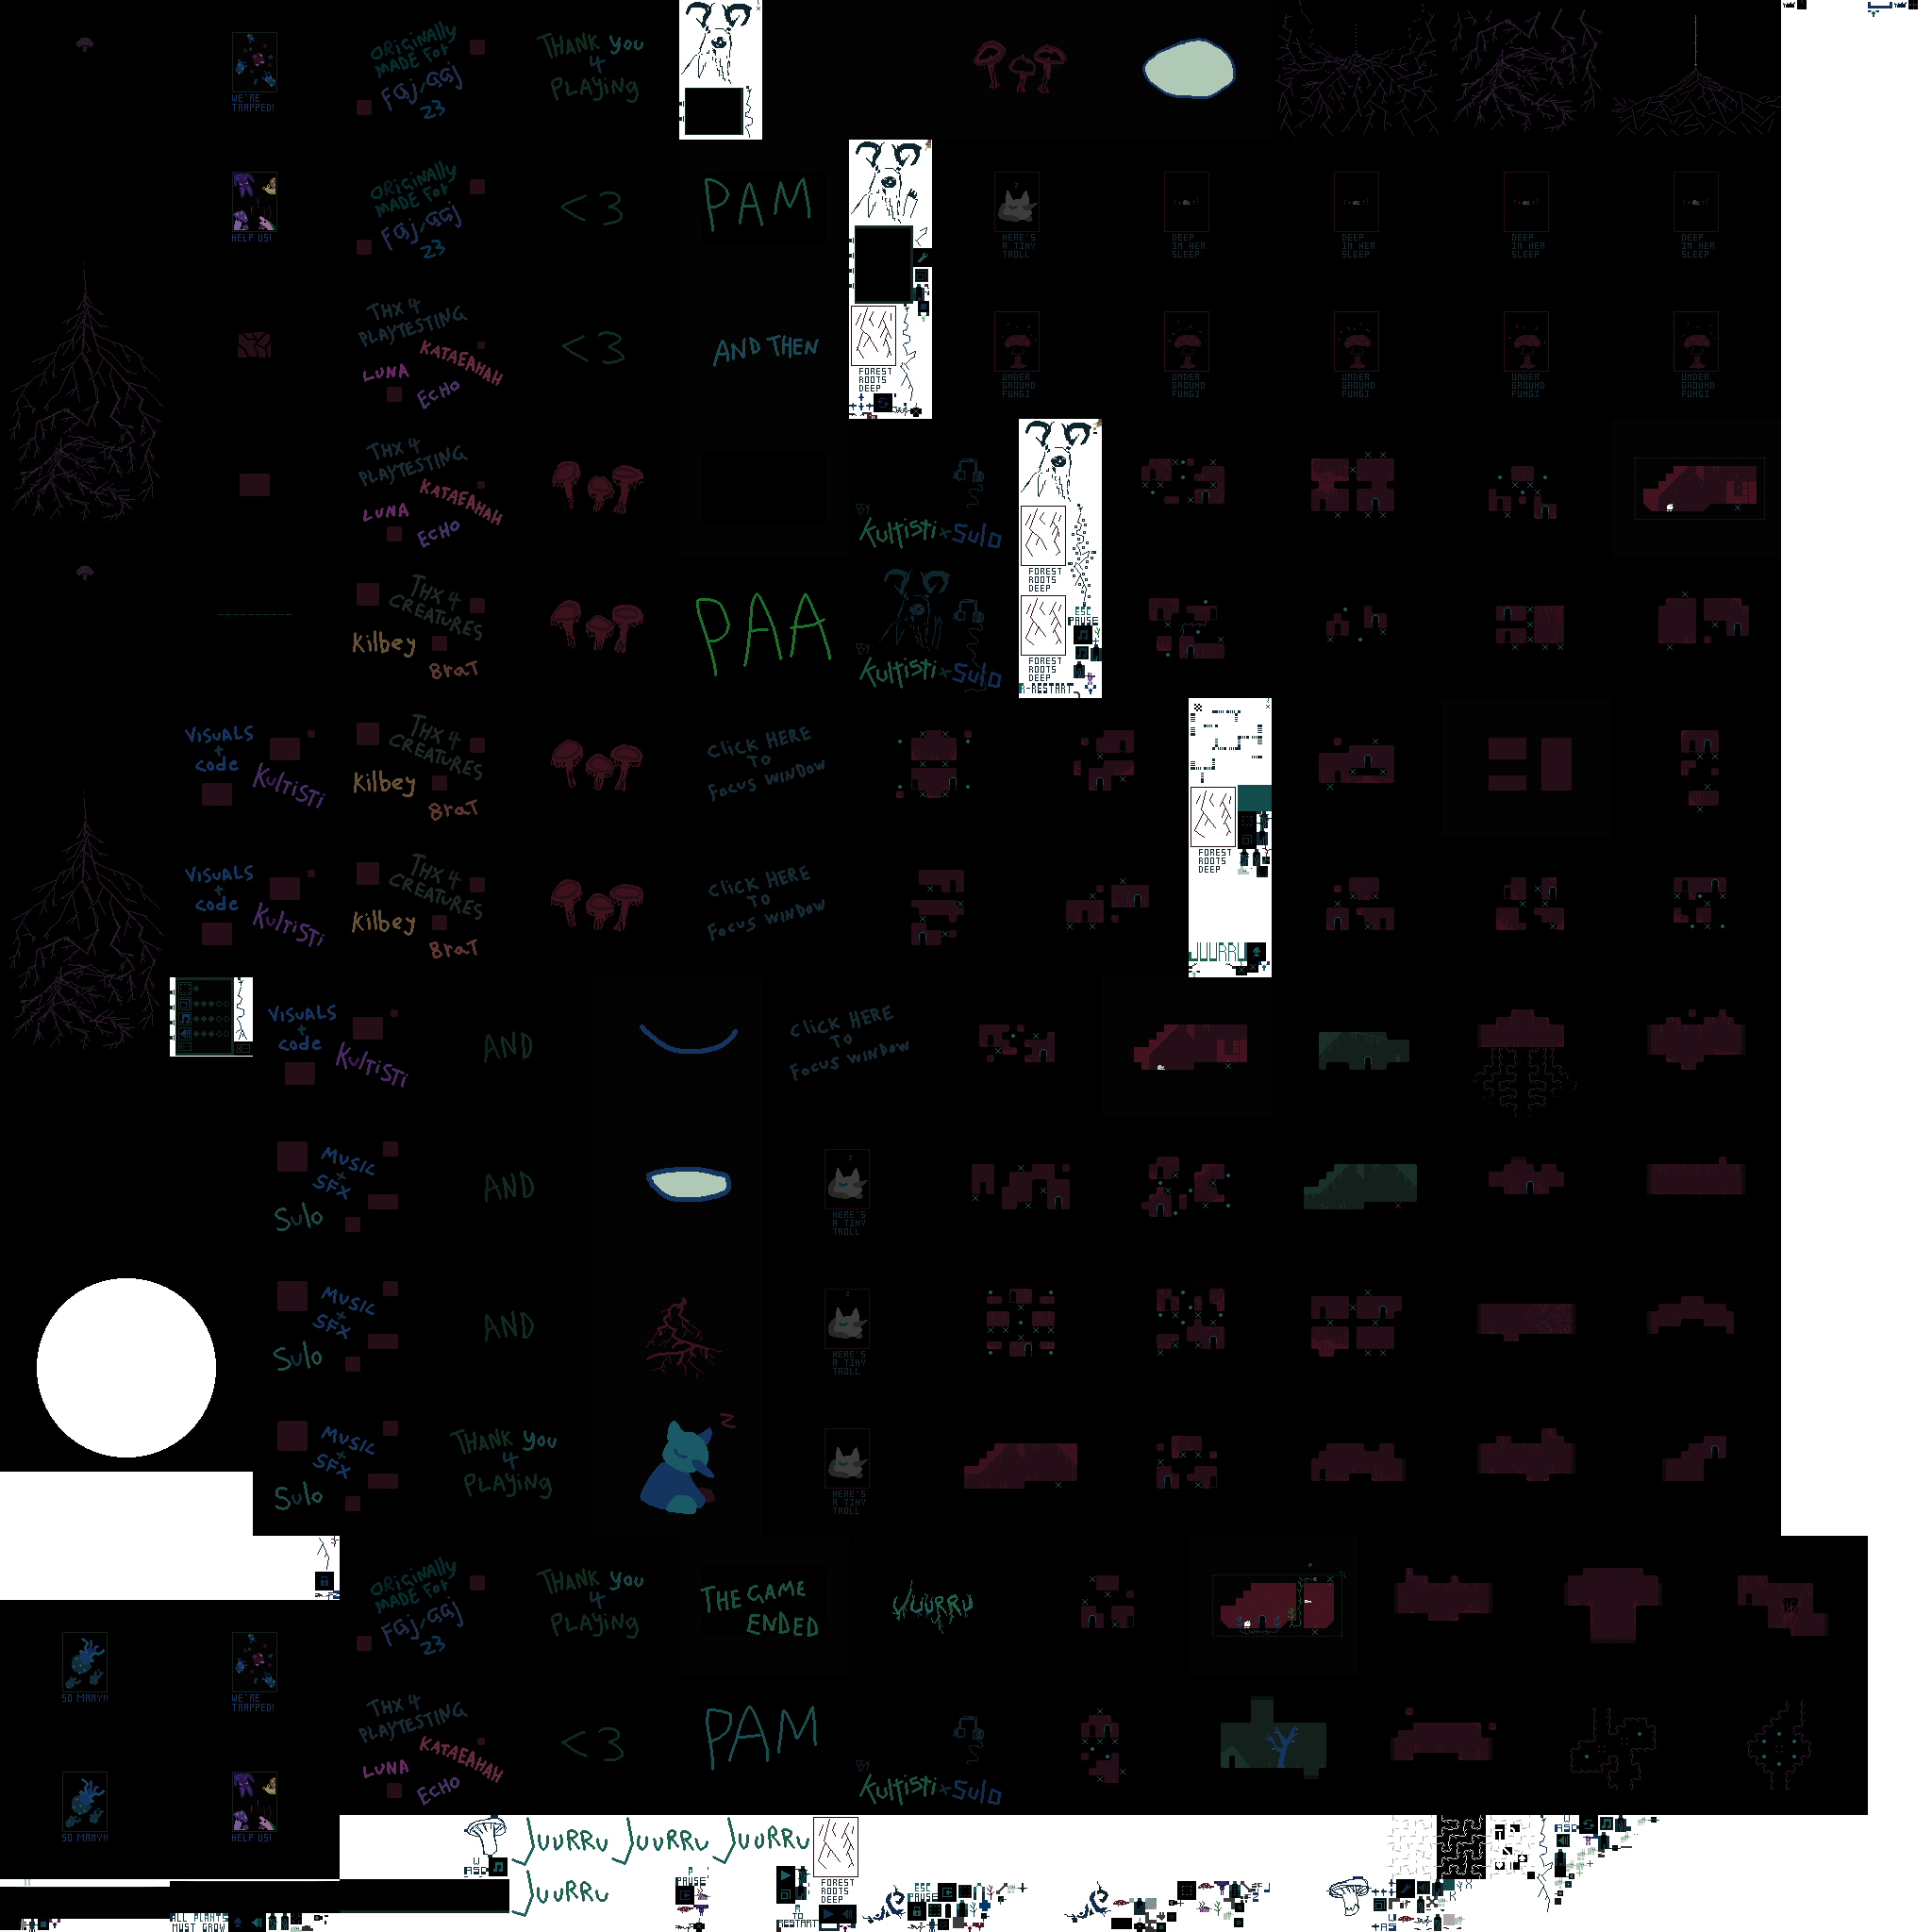 WE'RE
TRAPPED!
ORIGINALLY
MADE FOR
FGJ/GGJ
23
THANK YOU
4
PLAYING
HELP US!
ORIGINALLY
MADE FOR
FGJ/GGJ
23
<3
PAM
HERE'S
A TINY
TROLL
DEEP
IN HER
SLEEP
DEEP
IN HER
SLEEP
DEEP
IN HER
SLEEP
DEEP
IN HER
SLEEP
THX 4
PLAYTESTING
LUNA
KATAEAHAH
ECHO
<3
AND THEN
FOREST
ROOTS
DEEP
UNDER
GROUND
FUNGI
UNDER
GROUND
FUNGI
UNDER
GROUND
FUNGI
UNDER
GROUND
FUNGI
UNDER
GROUND
FUNGI
THX 4
PLAYTESTING
LUNA
KATAEAHAH
ECHO
BY
Kultisti x Sulo
FOREST
ROOTS
DEEP
THX 4
CREATURES
Kilbey
BraT
PAA
Kultisti x Sulo
ESC
PAUSE
FOREST
ROOTS
DEEP
R-RESTART
VISUALS
+
code
KULTISTI
THX 4
CREATURES
Kilbey
BraT
CLICK HERE
TO
FOCUS WINDOW
FOREST
ROOTS
DEEP
VISUALS
+
code
KULTISTI
THX 4
CREATURES
Kilbey
BraT
CLICK HERE
TO
FOCUS WINDOW
JUURRU
VISUALS
+
code
KULTISTI
AND
CLICK HERE
TO
FOCUS WINDOW
MUSIC
+
SFX
Sulo
AND
Z
HERE'S
A TINY
TROLL
MUSIC
+
SFX
Sulo
AND
Z
HERE'S
A TINY
TROLL
MUSIC
+
SFX
Sulo
THANK YOU
4
PLAYING
Z
HERE'S
A TINY
TROLL
ORIGINALLY
MADE FOR
FGJ/GGJ
23
THANK YOU
4
PLAYING
THE GAME
ENDED
JUURRU
SO MANY!!
WE'RE
TRAPPED!
THX 4
PLAYTESTING
LUNA
KATAEAHAH
ECHO
<3
PAM
BY
Kultisti x Sulo
SO MANY!!
HELP US!
JUURRU
JUURRU
JUURRU
W
ASD
JUURRU
P
PAUSE
FOREST
ROOTS
DEEP
ESC
PAUSE
ALL PLANTS
MUST GROW
R
TO
RESTART